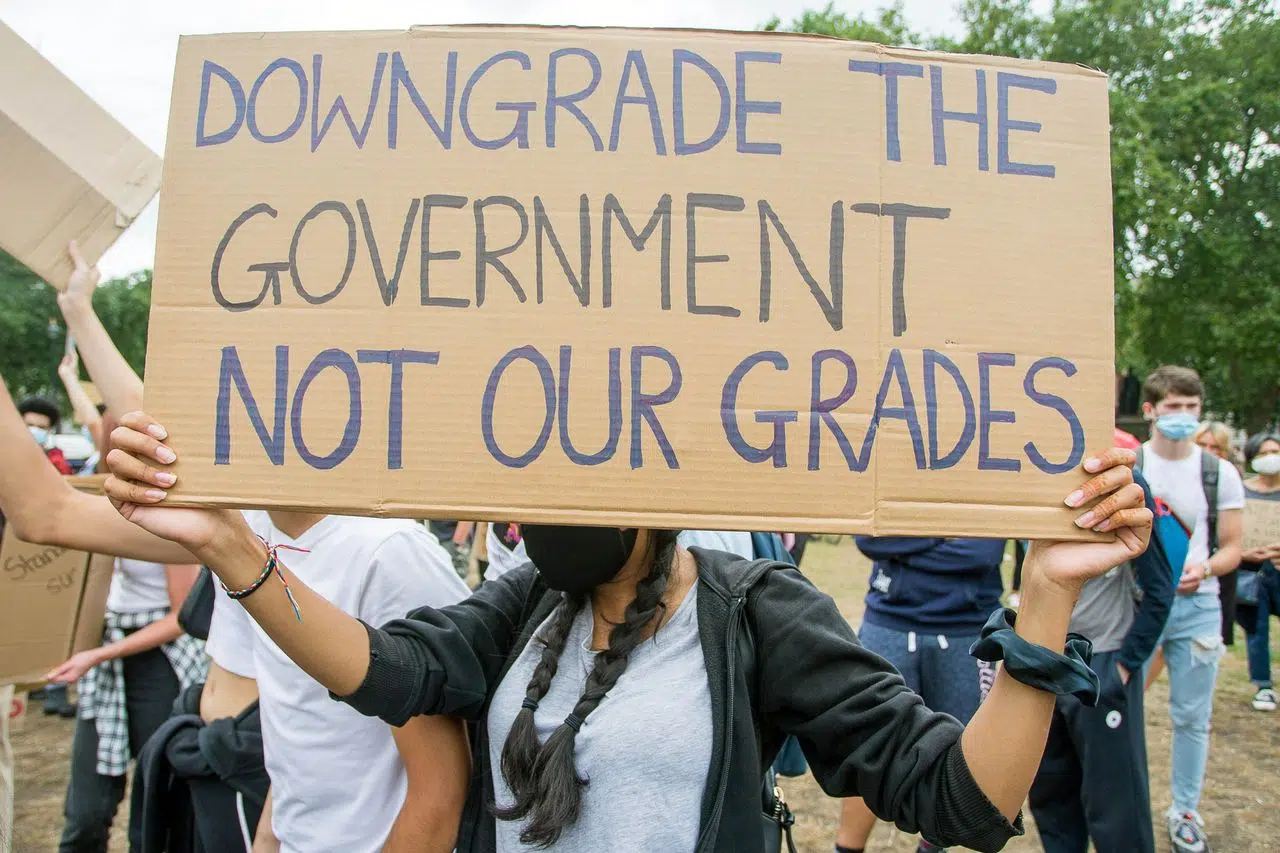 DOWNGRADE THE
GOVERNMENT
NOT OUR GRADES